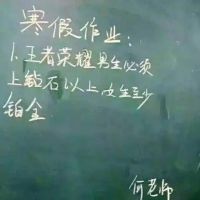 寒假作业:
1.王者荣耀男生必须
上钻石以上女生至少
铂金
何老师